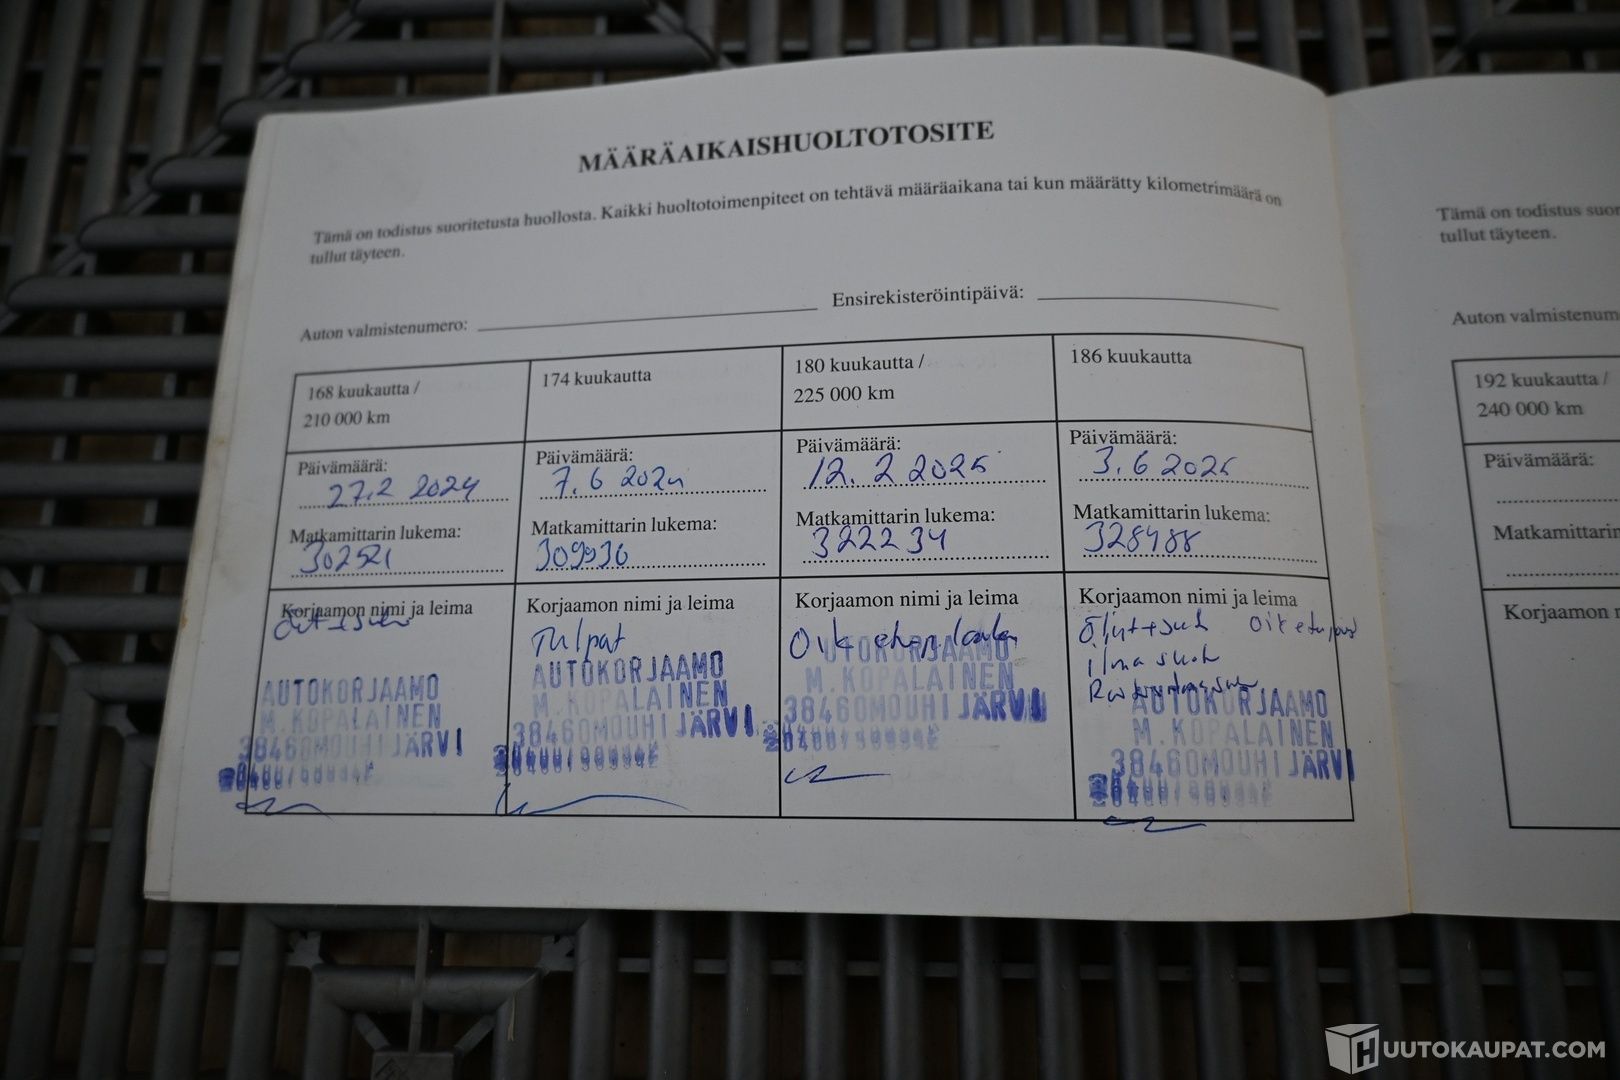 MÄÄRÄAIKAISHUOLTOTOSITE
Tämä on todistus suoritetusta huollosta. Kaikki huoltotoimenpiteet on tehtävä määräaikana tai kun määrätty kilometrimäärä on
tullut täyteen.
Auton valmistenumero:
Ensirekisteröintipäivä:
168 kuukautta /
210 000 km
Päivämäärä:
27.2 2024
Matkamittarin lukema:
302521
Korjaamon nimi ja leima
AUTOKORJAAMO
M. KOPALAINEN
38460MOUHIJÄRVI
174 kuukautta
Päivämäärä:
7.6 2024
Matkamittarin lukema:
309936
Korjaamon nimi ja leima
Tulpat
AUTOKORJAAMO
M. KOPALAINEN
38460MOUHIJÄRVI
180 kuukautta /
225 000 km
Päivämäärä:
12. 2 2025
Matkamittarin lukema:
322234
Korjaamon nimi ja leima
Oik etu
AUTOKORJAAMO
M. KOPALAINEN
38460MOUHIJÄRVI
186 kuukautta
Päivämäärä:
3.6 2025
Matkamittarin lukema:
328488
Korjaamon nimi ja leima
Oik etu
AUTOKORJAAMO
M. KOPALAINEN
38460MOUHIJÄRVI
Tämä on todistus
tullut täyteen.
Auton
192 kuukautta /
240 000 km
Päivämäärä:
Matkamittarin
Korjaamon
HUUTOKAUPAT.COM